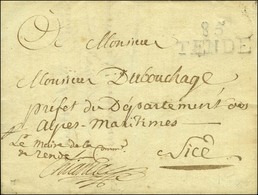 85
TENDE
A Monsieur
Monsieur Dubouchage
prefet du Département des
Alpes-Maritimes
Le Maire de la Comm.
de Tende
Nice